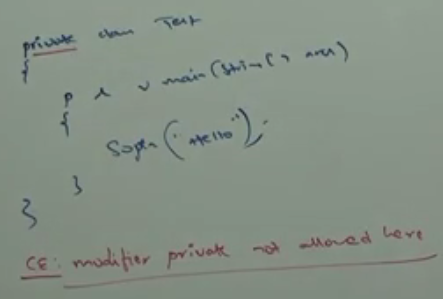 private class Test
{
p s v main(String[] args)
{
Sopln("Hello");
}
}
CE: modifier private not allowed here